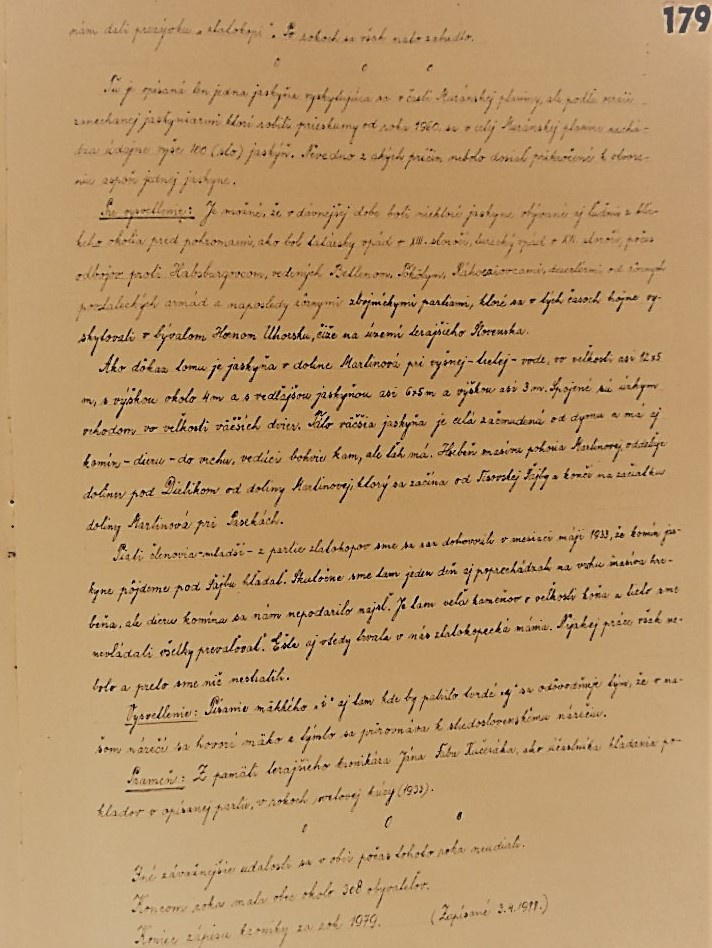 179
nám dali prezývku „zlatokopi“. Po rokoch sa však nato zabudlo.
o o o
Tu je opísaná len jedna jaskyňa vyskytujúca sa v časti Muránskej planiny, ale podľa verzie
zanechanej jaskyniarmi ktorí robili prieskumy od roku 1960, sa v celej Muránskej planine nachá-
dza údajne vyše 100 (sto) jaskýň. Nevedno z akých príčin nebolo dosiaľ prikročené k otvore-
niu aspoň jednej jaskyne.
Pre vysvetlenie: Je možné, že v dávnejšej dobe boli niektoré jaskyne obývané aj ľuďmi z blíz-
keho okolia pred pohromami, ako bol tatársky vpád v XIII. storočí, turecký vpád v XVI. storočí, počas
odbojov proti Habsburgovcom, vedených Betlenom, Tökölym, Rákocziovcami, dezertérmi od rôznych
povstaleckých armád a naposledy rôznymi zbojníckymi partiami, ktoré sa v tých časoch hojne vy-
skytovali v bývalom Hornom Uhorsku, čiže na území terajšieho Slovenska.
Ako dôkaz tomu je jaskyňa v doline Martinová pri vyšnej-bielej-vode, vo veľkosti asi 12x5
m, s výškou okolo 4m a s vedľajšou jaskyňou asi 6x5m a výškou asi 3m. Spojené sú úzkym
vchodom vo veľkosti väčších dvier. Táto väčšia jaskyňa je celá začmudená od dymu a má aj
komín-dieru-do vrchu, vedúci bohvie kam, ale ťah má. Hrebeň masívu pohoria Martinovej, oddeľuje
dolinu pod Dielikom od doliny Martinovej, ktorý sa začína od Tisovskej Fajby a končí na začiatku
doliny Martinová pri Pasekách.
Piati členovia-mladší-z partie zlatokopov sme sa raz dohovorili v mesiaci máji 1933, že komín jas-
kyne pôjdeme pod Fajbu hľadať. Skutočne sme tam jeden deň aj poprechádzali na vrchu masíva hre-
beňa, ale dieru komínu sa nám nepodarilo nájsť. Je tam veľa kameňov o veľkosti koňa a tieto sme
nevládali všetky prevaľovať. Ešte aj vtedy trvala v nás zlatokopecká mánia. Nijakej práce však ne-
bolo a preto sme nič nestratili.
Vysvetlenie: Písanie mäkkého „i“ aj tam kde by patrilo tvrdé „y“ sa odôvodňuje tým, že v na-
šom nárečí sa hovorí mäko a týmto sa prirovnáva k stredoslovenskému nárečiu.
Prameň: Z pamäti terajšieho kronikára Jána Faba Kučeráka, ako účastníka hľadania po-
kladov v opísanej partii, v rokoch svetovej krízy (1933).
o o o
Iné závažnejšie udalosti sa v obci počas tohoto roka neudiali.
Koncom roka mala obec okolo 308 obyvateľov.
Koniec zápisu kroniky za rok 1979. (Zapísané 3.4.1981.)